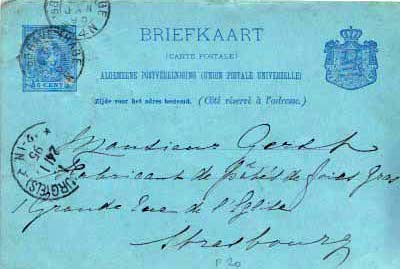 BRIEFKAART
(CARTE POSTALE)
ALGEMEENE POSTVEREENIGING (UNION POSTALE UNIVERSELLE)
Zijde voor het adres bestemd. (Côté réservé à l'adresse.)
CENT
Monsieur Gerst
Fabricant de Pâtés de foies Gras
Grande Rue de l'Eglise
Strasbourg
F 20